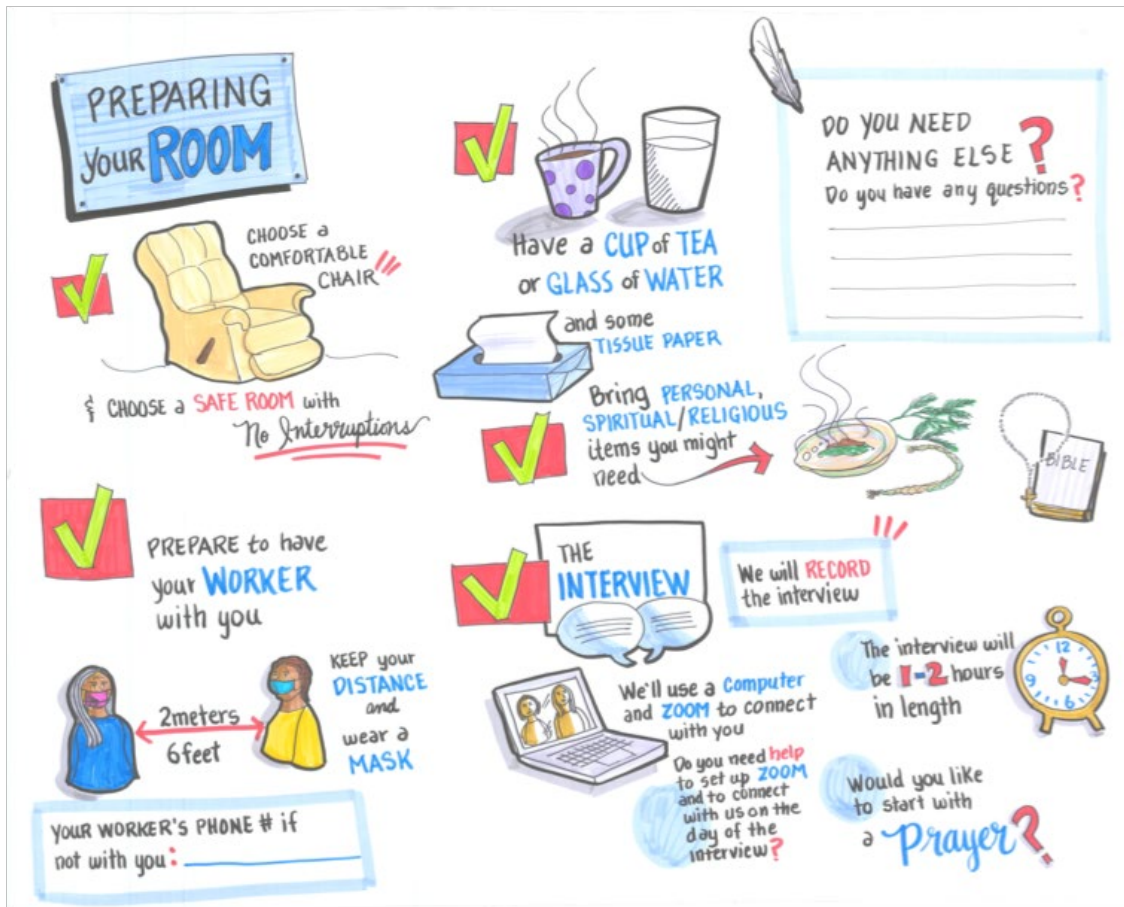 PREPARING
your ROOM
CHOOSE a
COMFORTABLE
CHAIR
& CHOOSE a SAFE ROOM with
No Interruptions
PREPARE to have
your WORKER
with you
2meters
6feet
KEEP your
DISTANCE
and
wear a
MASK
YOUR WORKER'S PHONE # if
not with you:
Have a CUP of TEA
or GLASS of WATER
and some
TISSUE PAPER
Bring PERSONAL,
SPIRITUAL/RELIGIOUS
items you might
need
BIBLE
THE
INTERVIEW
We will RECORD
the interview
We'll use a Computer
and ZOOM to connect
with you
Do you need help
to set up ZOOM
and to connect
with us on the
day of the
interview?
The interview will
be 1-2 hours
in length
12
3
6
9
Would you like
to start with
a Prayer?
DO YOU NEED
ANYTHING ELSE?
Do you have any questions?